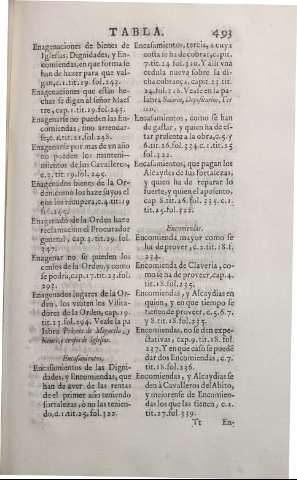 TABLA. 493
Enagenaciones de bienes de
Iglesias, Dignidades, y En-
comiendas, en que forma se
han de hazer para que val-
gan, c.1. tit.29. fol.242.
Enagenaciones que estàn he-
chas se digan al señor Maes
tre, cap.1. tit.29. fol.243.
Enagenarse no pueden las En-
comiendas, sino arrendar-
se, c. tit.21. fol.248.
Enagenarse por mas de vn año
no pueden los manteni-
mientos de los Cavalleros,
c.3. tit.29. fol.245.
Enagenados bienes de la Or-
den, como los haze suyos el
que los recupera, c.4. tit.29
fol.245.
Enagenado de la Orden ha de
reclamar el Procurador
general, cap.3. tit.29. fol.
247.
Enagenar no se pueden los
censos de la Orden, y como
se podrà, cap.17. tit.23. fol.
293.
Enagenados lugares de la Or-
den, los visiten los Visita-
dores de la Orden, cap.19.
tit.23. fol.294. Vease la pa
labra
bienes,
Encasamientos.
Encasamientos de las Digni-
dades, y Encomiendas, que
han de aver de las rentas
de el primer año teniendo
fortalezas, ò no las tenien-
do, c.1. tit.25, fol.322.
Encasamientos, tercia, à cuya
costa se ha de cobrar, cap.
7. tit.24. fol.310. Y allì vna
cedula nueva sobre la di-
cha cobrança, cap.1. tit.
24. fol.318. Vease en la pa-
labra Notario, Depositario, Ter
cias.
Encasamientos, como se han
de gastar, y quien ha de es-
tar presente à la obra, c.5. y
6. tit.26. fol.334. c.1. tit.25
fol.322.
Encasamientos, que pagan los
Alcaydes de las fortalezas,
y quien ha de reparar lo
fuerte, y quien el aposento,
cap 8. tit.26. fol.335. c.1.
tit.25. fol.322.
Encomiendas.
Encomienda mayor como se
ha de proveer, c.2. tit.18. f.
234.
Encomienda de Claveria, co-
mo se ha de proveer, cap.4.
tit.18. fol.235.
Encomiendas, y Alcaydias en
quien, y en que tiempo se
tienen de proveer, c.5.6.7.
y 8. tit.18. fol.235.
Encomiendas, no se den expe-
ctativas, cap.9. tit.18. fol.
237. Y en que caso se puede
dar dos Encomiendas, c.7.
tit.18. fol.236.
Encomiendas, y Alcaydias se
den à Cavalleros del Abito,
y mejorense de Encomien-
das los que las tienen, c.1.
tit.27. fol.339.
Tt En-